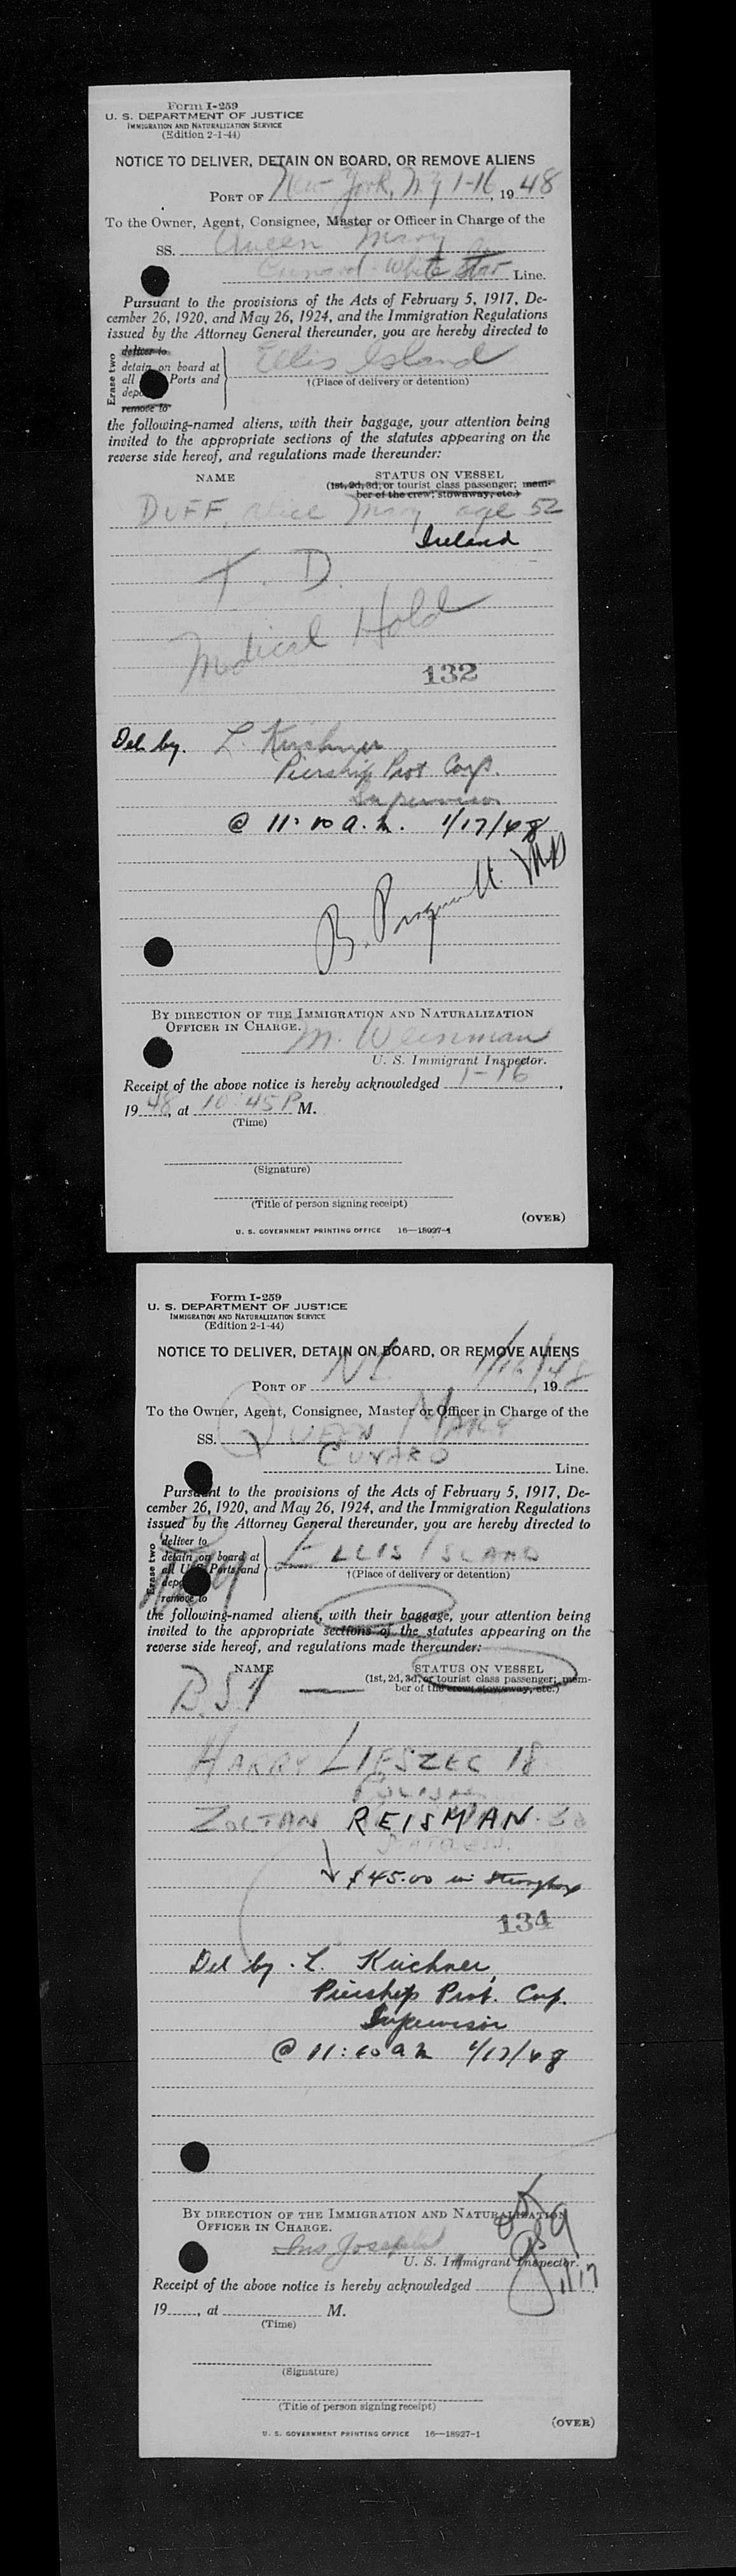 Form I-259
U. S. DEPARTMENT OF JUSTICE
IMMIGRATION AND NATURALIZATION SERVICE
(Edition 2-1-44)
NOTICE TO DELIVER, DETAIN ON BOARD, OR REMOVE ALIENS
PORT OF New York, N.Y 1-16, 1948
To the Owner, Agent, Consignee, Master or Officer in Charge of the
SS. Queen Mary
Cunard-White Star Line.
Pursuant to the provisions of the Acts of February 5, 1917, De-
cember 26, 1920, and May 26, 1924, and the Immigration Regulations
issued by the Attorney General thereunder, you are hereby directed to
Erase two
deliver to
detain on board at
all Ports and
remove to
Ellis Island
†(Place of delivery or detention)
the following-named aliens, with their baggage, your attention being
invited to the appropriate sections of the statutes appearing on the
reverse side hereof, and regulations made thereunder:
NAME STATUS ON VESSEL
(1st, 2d, 3d, or tourist class passenger; mem-
ber of the crew; stowaway, etc.)
DUFF, Alice Mary age 52
Ireland
T. D.
Medical Hold
132
Del. by. L. Kirchner
Piership Prot. Corp.
Supervisor
@ 11:10 a.m. 1/17/48
B. M.D
BY DIRECTION OF THE IMMIGRATION AND NATURALIZATION
OFFICER IN CHARGE.
M. Weinman
U. S. Immigrant Inspector.
Receipt of the above notice is hereby acknowledged 1-16,
1948, at 10:45 P M.
(Time)
(Signature)
(Title of person signing receipt)
(OVER)
U. S. GOVERNMENT PRINTING OFFICE 16—18927-1
Form I-259
U. S. DEPARTMENT OF JUSTICE
IMMIGRATION AND NATURALIZATION SERVICE
(Edition 2-1-44)
NOTICE TO DELIVER, DETAIN ON BOARD, OR REMOVE ALIENS
PORT OF NY 1/16/48, 19
To the Owner, Agent, Consignee, Master or Officer in Charge of the
SS. QUEEN MARY
CUNARD Line.
Pursuant to the provisions of the Acts of February 5, 1917, De-
cember 26, 1920, and May 26, 1924, and the Immigration Regulations
issued by the Attorney General thereunder, you are hereby directed to
Erase two
deliver to
detain on board at
all Ports and
remove to
ELLIS ISLAND
†(Place of delivery or detention)
the following-named aliens, with their baggage, your attention being
invited to the appropriate sections of the statutes appearing on the
reverse side hereof, and regulations made thereunder:
NAME STATUS ON VESSEL
(1st, 2d, 3d, or tourist class passenger; mem-
ber of the crew; stowaway, etc.)
B.S.I —
HARRY LIESZEC 18
POLISH
ZOLTAN REISMAN
$45.00 in Strongbox
134
Del by. L. Kirchner,
Piership Prot. Corp.
Supervisor
@ 11:10 am 1/17/48
BY DIRECTION OF THE IMMIGRATION AND NATURALIZATION
OFFICER IN CHARGE.
U. S. Immigrant Inspector.
1/17
Receipt of the above notice is hereby acknowledged
19, at M.
(Time)
(Signature)
(Title of person signing receipt)
(OVER)
U. S. GOVERNMENT PRINTING OFFICE 16—18927-1